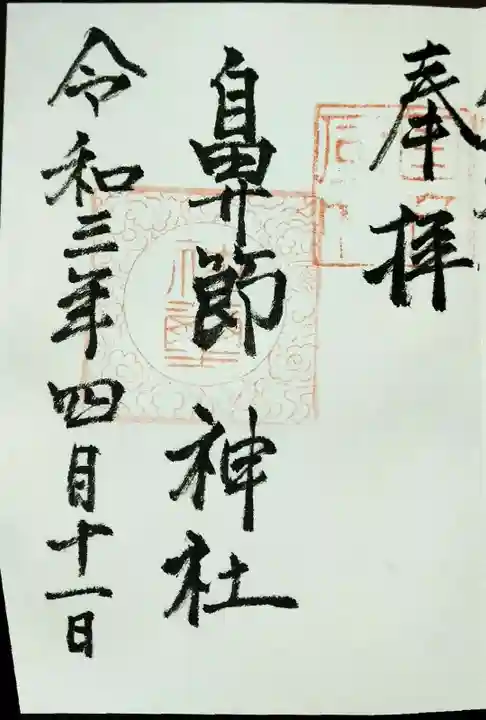 奉拝
鼻節神社
令和三年四月十一日